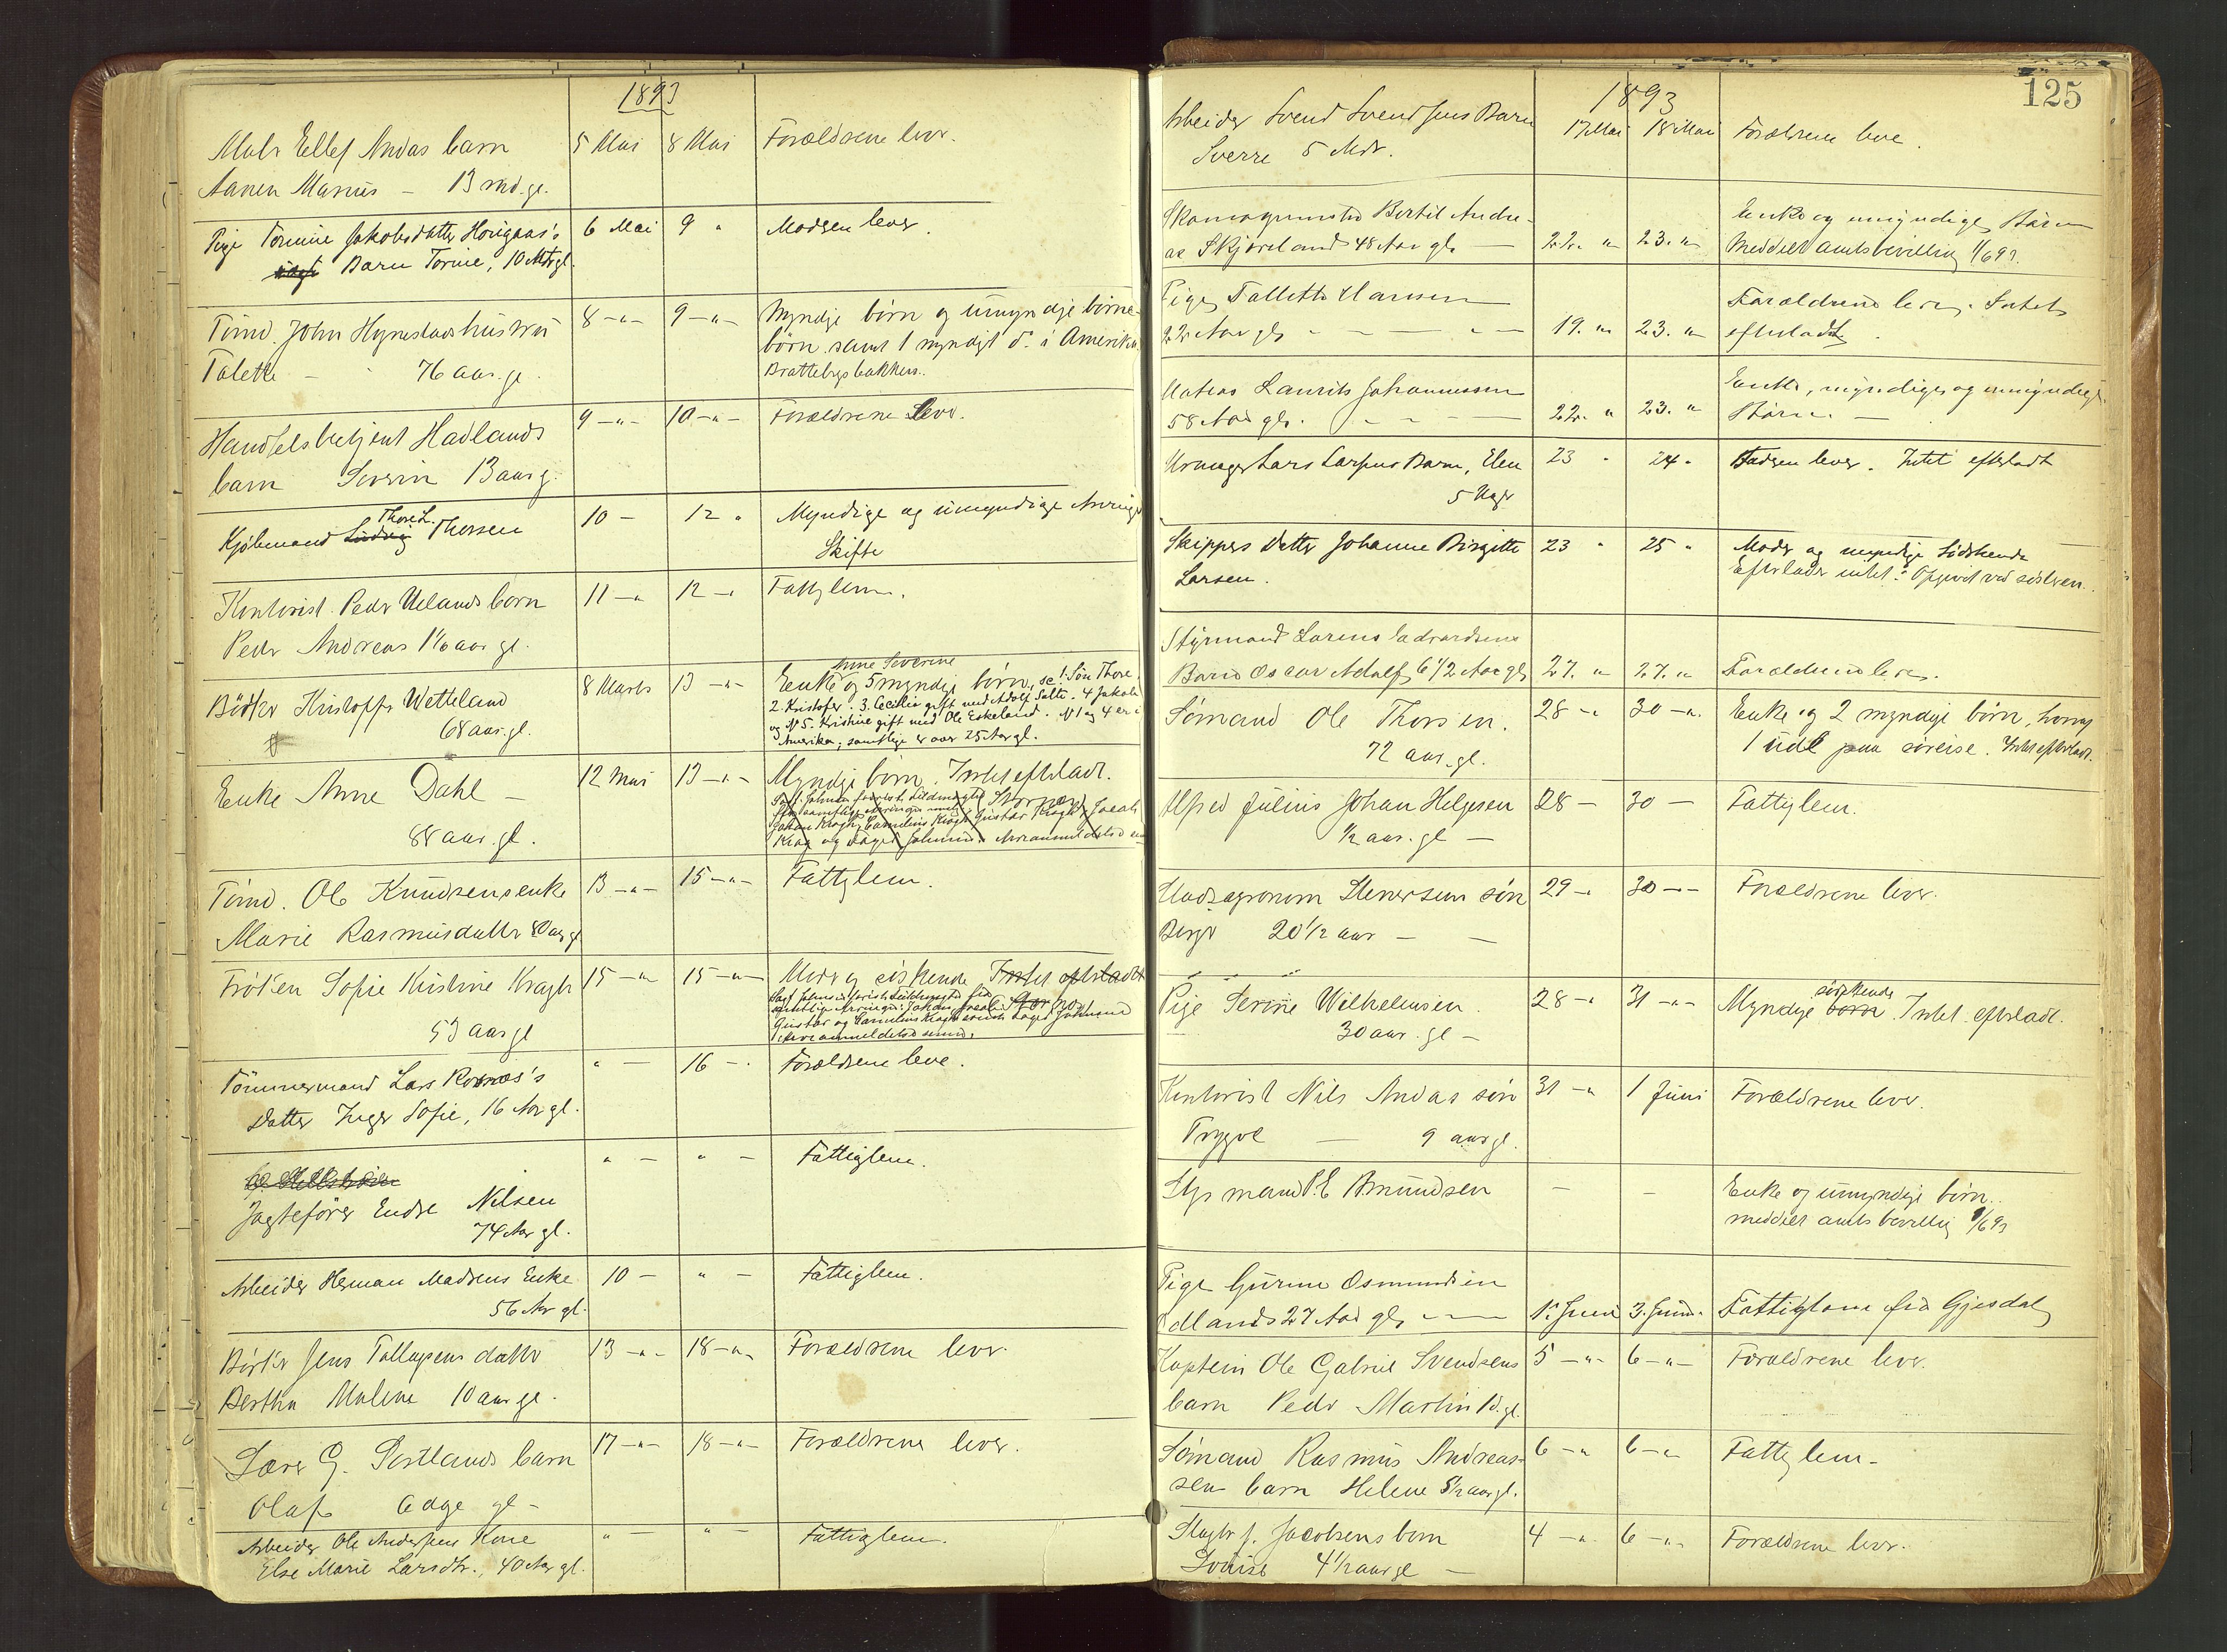 1893
Malr Ellef Andas barn 5 Mai 8 Mai Forældrene lever.
Aanen Marius – 13 md. gl.
Pige Tomine Jakobsdatter Hougaas's 6 Mai 9 " Moderen lever.
Barn Tomine, 10 Mdr gl.
Tømd. John Hognestads hustru 8 –"– 9 –"– Myndige børn og umyndige børne-
Talette – 76 aar. gl. børn samt 1 myndigt d. i Amerika.
Brattebgsbakken.
Handelsbetjent Hadlands 9 –"– 10 –"– Forældrene lever.
barn Severin 13 aar g.
Kjøbmand Ludvig Thore L. Thorsen 10 – 12 " Myndige og umyndige Arvinger
Skifte
Kontorist Peder Uelands barn 11 –" 12 –" Fattiglem.
Peder Andreas 1 1/6 aar gl.
Bødker Kristoffer Wetteland 8 Marts 13 –"– Enke Anne Severine og 5 myndige børn, se: 1. Søn Thore
68 aar. gl. 2. Kristofer. 3. Cecilia gift med Adolf Salte. 4 Jakob
og № 5. Kristine gift med Ole Eskeland. № 1 og 4 er i
Amerika, samtlige er over 25 Aar gl.
Enke Anne Dahl – 12 Mai 13 –"– Myndige børn. Intet efterladt.
88 aar. gl.
Tømd. Ole Knudsens enke 13 –"– 15 –"– Fattiglem.
Marie Rasmusdatter 80 aar gl
Frøken Sofie Kristine Kragh 15 –" 15 –"– Moder og søskende Intet efterladt
53 aar gl
Tømmermand Lars Rosnæs's " – 16 –. Forældrene leve.
Datter Inger Sofie, 16 Aar gl.
" – " – Fattiglem.
Jagtefører Endre Nilsen
74 Aar gl.
Arbeider Herman Madsens Enke 10 – " – Fattiglem.
56 Aar gl.
Bødker Jens Tallaksens datter 13 –"– 18 –"– Forældrene lever.
Bertha Malene 10 aar gl.
Lærer G. Sortlands barn 17 –"– 18 –"– Forældrene lever.
Olaf 6 dage gl –
Arbeider Ole Andersens Kone " – " – Fattiglem.
Else Marie Larsdtr., 40 Aar gl.
125
1893
Arbeider Svend Svendsens Barn 17 Mai 18 Mai Forældrene leve.
Sverre 5 Mdr.
Skomagermester Bertil Andre- Enke og umyndige Børn
as Skjøreland 48 Aar gl. – 22. " 23. " Meddelt amtsbevilling 1/6 93.
Pige Tallette Hansen Forældrene lever. Intet
22 Aar gl. – 19. " 23. " efterladt.
Matias Laurits Johannessen Enke, myndige og umyndige
58 Aar gl. – – 22. " 23. " Børn. –
Urmager Lars Larsens Barn, Elen 23 " 24 " Faderen lever. Intet efterladt
5 Uger
Skippers Datter Johanne Birgitte 23 " 25 " Moder og myndige Sødskende
Larsen. Efterlader intet: Opgivet ved søsteren.
Styrmand Lorens Edvardsens
Barn Oscar Adolf 6 1/2 Aar gl 27. " 27. " Forældrene lever.
Sømand Ole Thorsen. 28 –" 30 –". Enke og 2 myndige børn, hvoraf
72 aar. gl. 1 ude paa søreise. Intet efterladt.
Alfred Julius Johan Helgesen 28 – 30 – Fattiglem.
1/2 aar. gl –
Stadsagronom Stenersens søn 29 –" 30 –– Forældrene lever.
Birger 20 1/2 aar – –
Pige Serine Wilhelmsen. 28 –" 31 –"– Myndige børn søskende. Intet efterladt.
30 aar. gl –
Kontorist Nils Andas søn 31 –" 1 Juni Forældrene lever.
Trygve – 9 aar gl.
Styrmand P. E. Amundsen – – Enke og umyndige børn.
meddelt amtsbevilling 9/6 93
Pige Gurine Osmundsen
Edlands 27 Aar gl. –– 1. Juni 3. Juni. Fattiglem fra Gjesdal
Kaptein Ole Gabriel Svendsens 5 –"– 6 –"– Forældrene lever.
barn Peder Martin 1 d. gl.
Sømand Rasmus Andreas- 6 –" 6 –" Fattiglem.
sen barn Helene 5 1/2 aar gl.
Slagter J. Jacobsens barn 4 –" 6 –"– Forældrene lever.
Louise 4 1/2 aar gl –